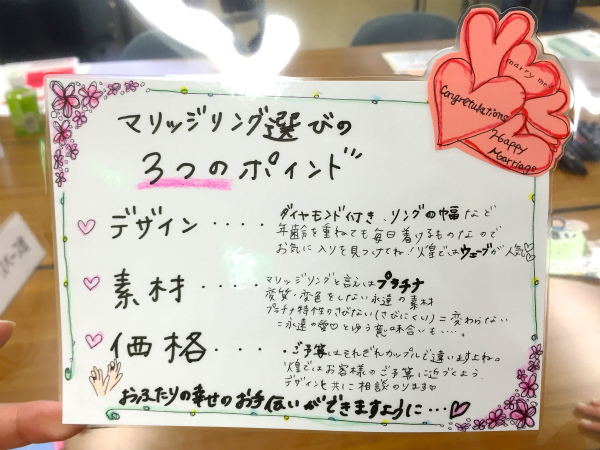 マリッジリング選びの
3つのポイント
marry me
Congratulations
Happy
Marriage
デザイン・・・・
ダイヤモンド付き、リングの幅など
年齢を重ねても毎日着けるものなので
お気に入りを見つけてね!煌ではウェーブが人気♡
素材・・・・
マリッジリングと言えばプラチナ
変質・変色をしない永遠の素材
プラチナ特性のさびない(さびにくい)=変わらない
=永遠の愛♡とゆう意味合いも・・・。
価格・・・・・
ご予算はそれぞれカップルで違いますよね。
煌ではお客様のご予算に近づくよう
デザインも共に相談のります♡
おふたりの幸せのお手伝いができますように…♡